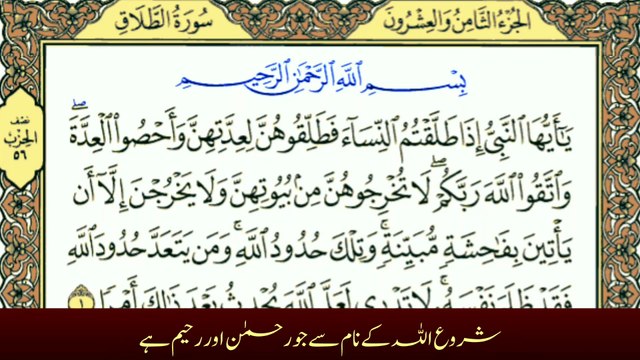 الجزء الثامن والعشرون
سورة الطلاق
نصف
الحزب
٥٦
بِسْمِ ٱللَّهِ ٱلرَّحْمَٰنِ ٱلرَّحِيمِ
يَٰٓأَيُّهَا ٱلنَّبِىُّ إِذَا طَلَّقْتُمُ ٱلنِّسَآءَ فَطَلِّقُوهُنَّ لِعِدَّتِهِنَّ وَأَحْصُوا۟ ٱلْعِدَّةَ ۖ
وَٱتَّقُوا۟ ٱللَّهَ رَبَّكُمْ ۖ لَا تُخْرِجُوهُنَّ مِنۢ بُيُوتِهِنَّ وَلَا يَخْرُجْنَ إِلَّآ أَن
يَأْتِينَ بِفَٰحِشَةٍ مُّبَيِّنَةٍ ۚ وَتِلْكَ حُدُودُ ٱللَّهِ ۚ وَمَن يَتَعَدَّ حُدُودَ ٱللَّهِ
فَقَدْ ظَلَمَ نَفْسَهُۥ ۚ لَا تَدْرِى لَعَلَّ ٱللَّهَ يُحْدِثُ بَعْدَ ذَٰلِكَ أَمْرًا ١
شروع اللہ کے نام سے جو رحمٰن اور رحیم ہے